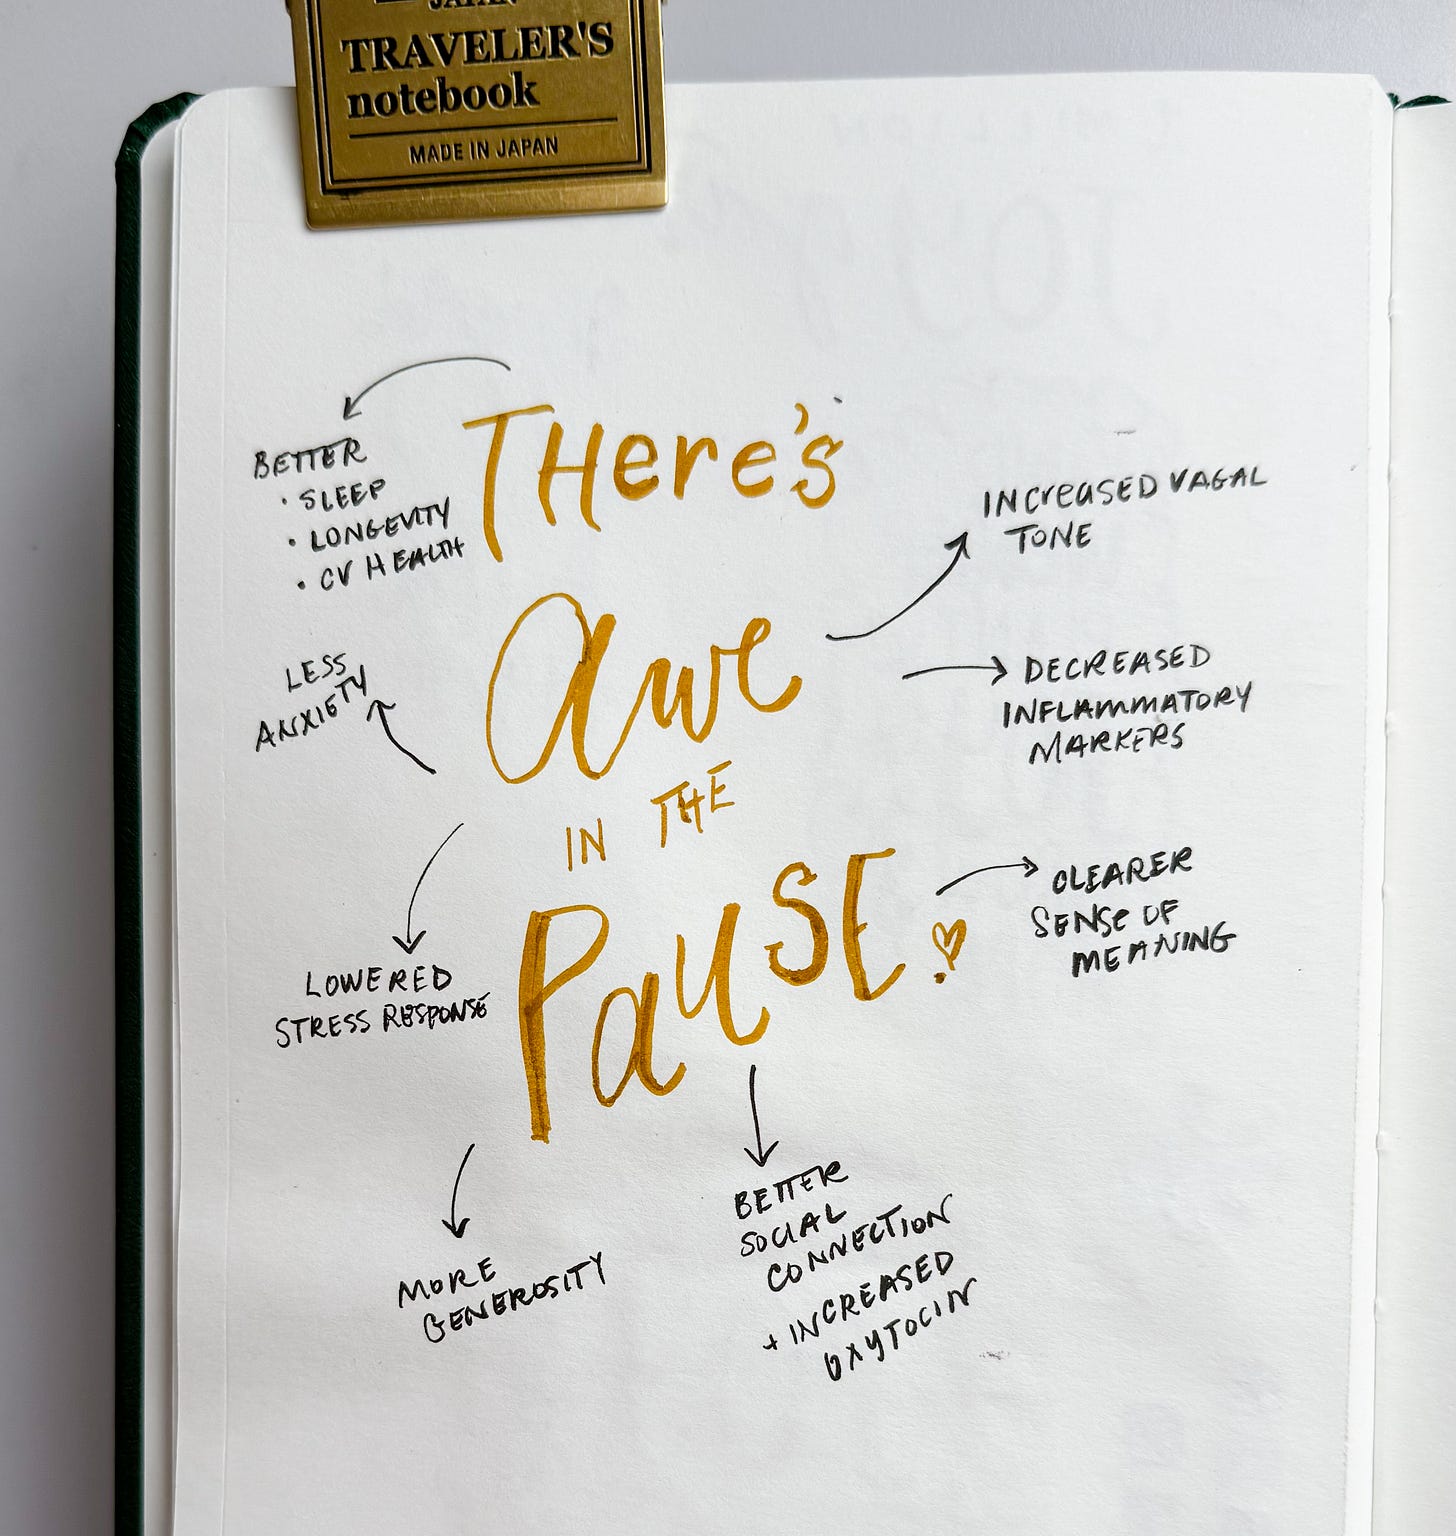 JAPAN
TRAVELER'S
notebook
MADE IN JAPAN
THere's
awe
IN THE
PauSE!
BETTER
• SLEEP
• LONGEVITY
• CV HEALTH
LESS
ANXIETY
LOWERED
STRESS RESPONSE
MORE
GENEROSITY
BETTER
SOCIAL
CONNECTION
+ INCREASED
OXYTOCIN
INCREASED VAGAL
TONE
DECREASED
INFLAMMATORY
MARKERS
CLEARER
SENSE OF
MEANING